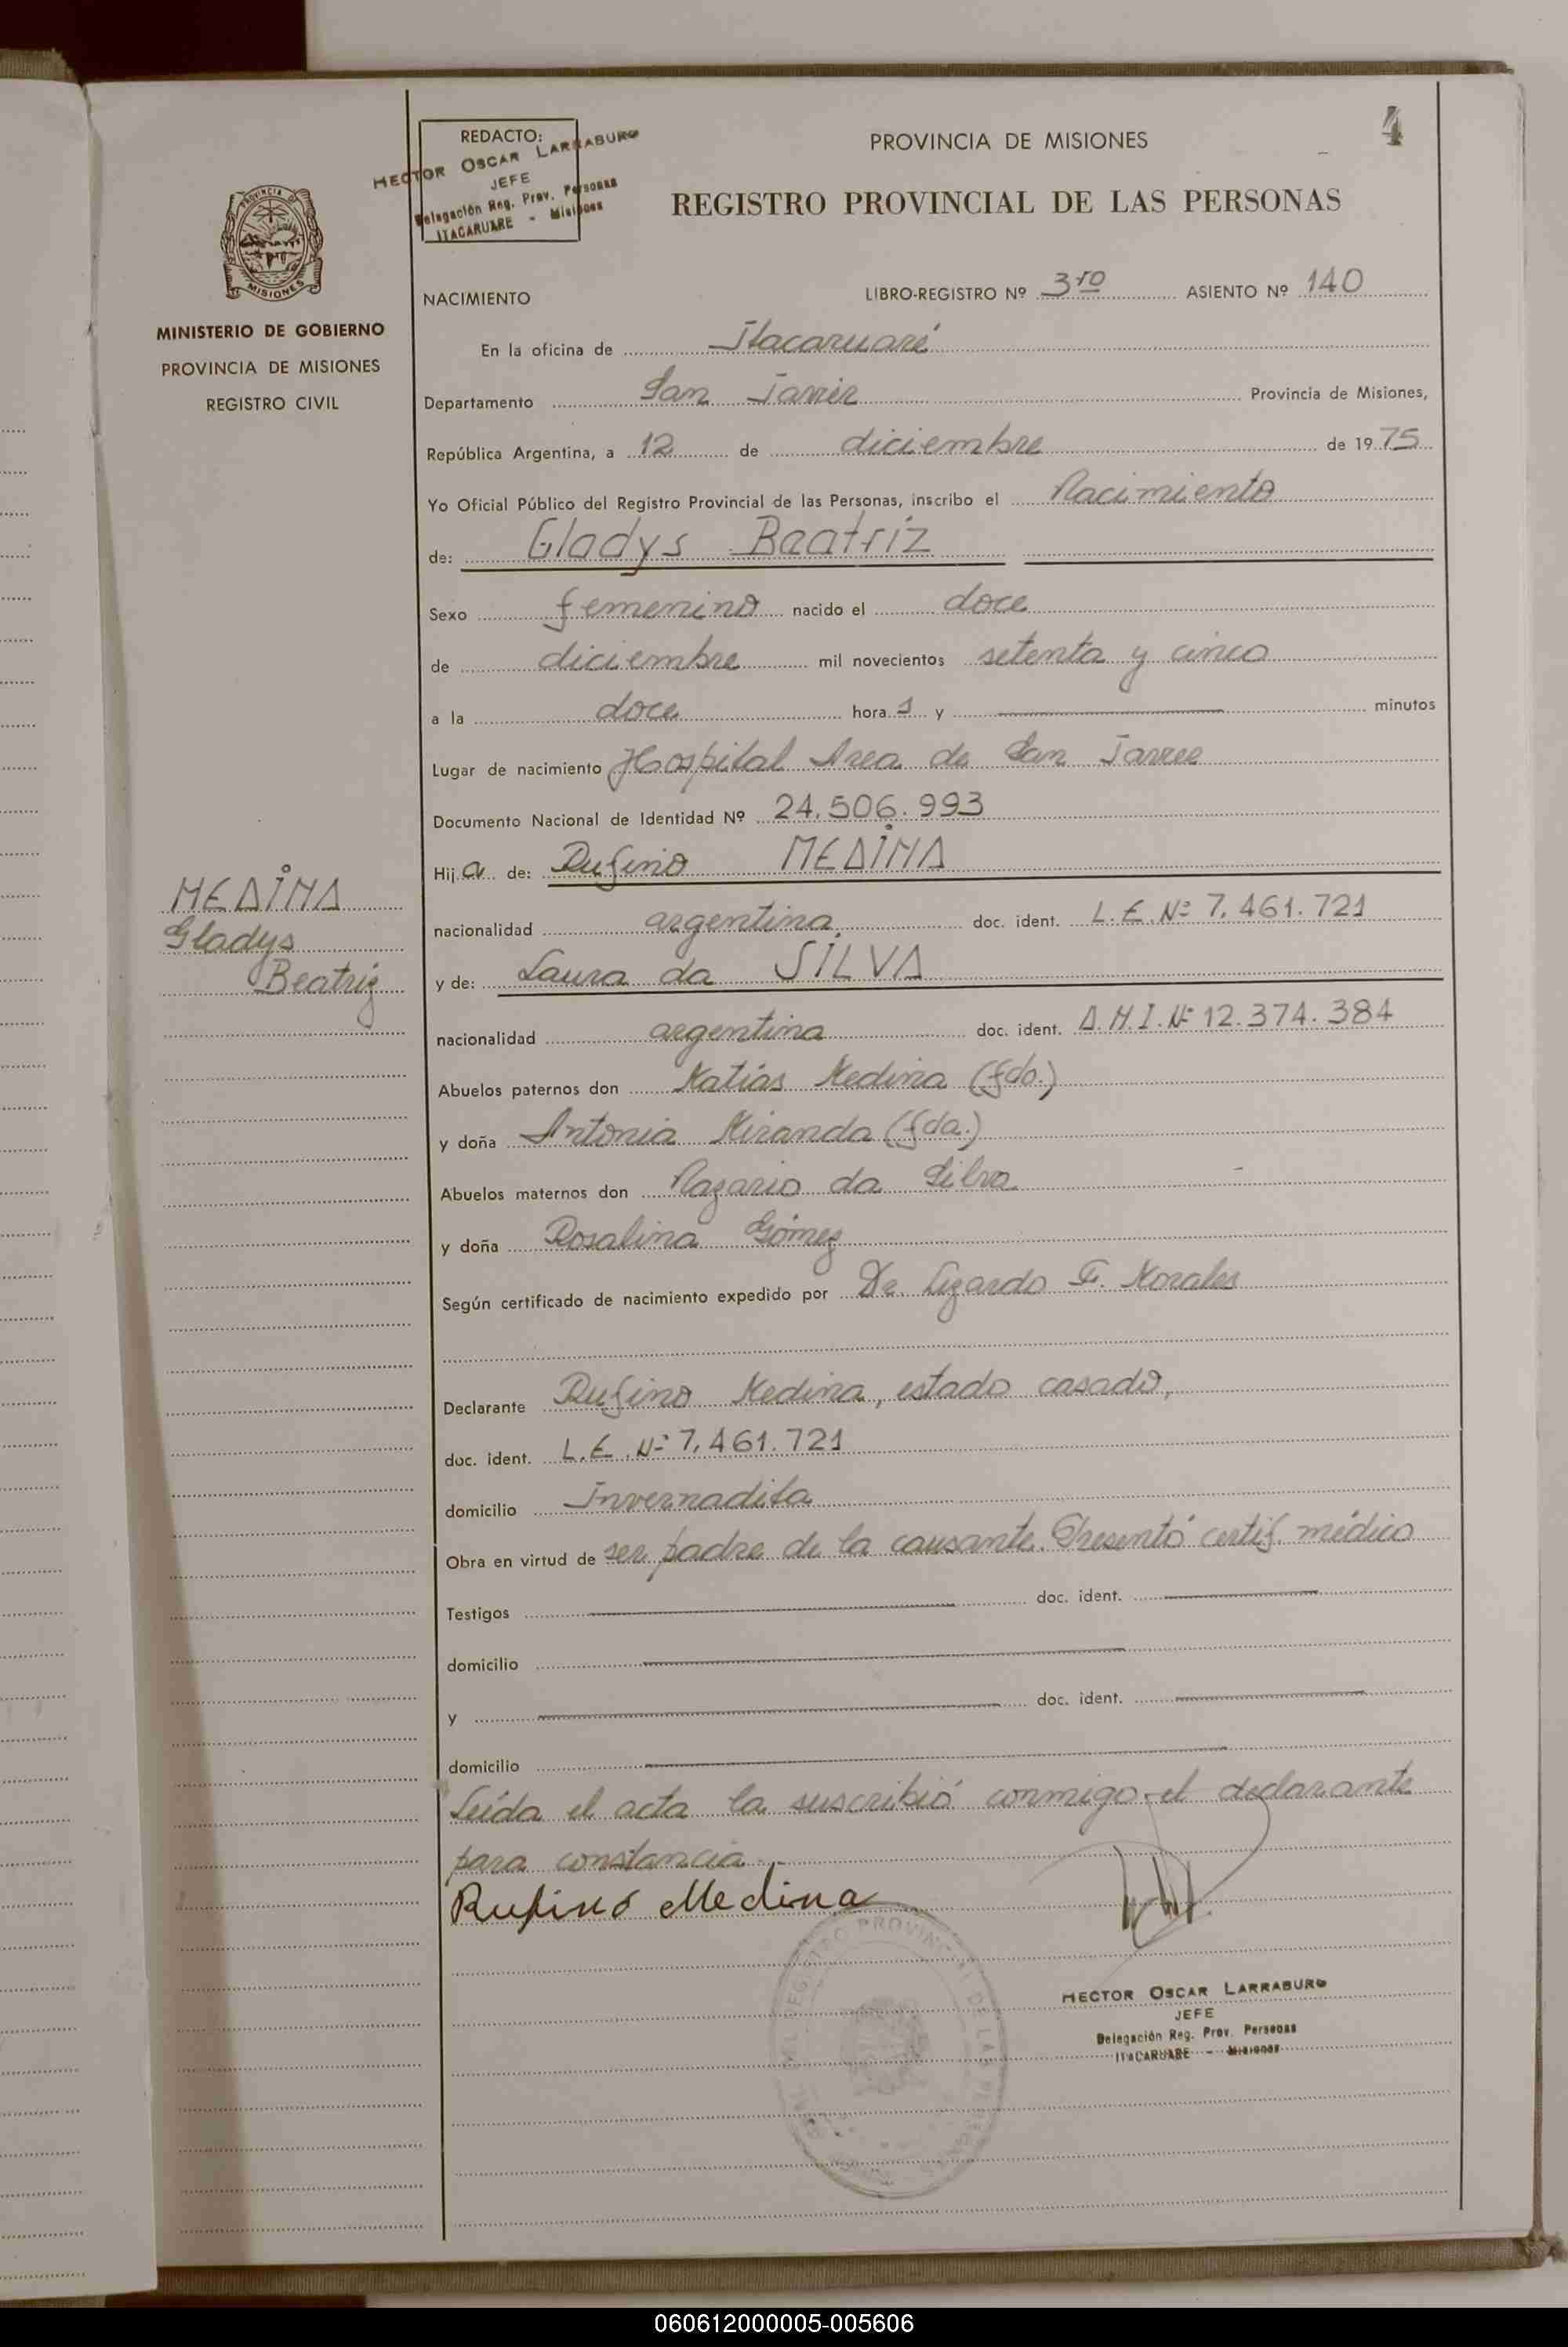 4
REDACTO:
HECTOR OSCAR LARRABURO
JEFE
Delegación Reg. Prov. Personas
ITACARUARE - Misiones
PROVINCIA DE MISIONES
REGISTRO PROVINCIAL DE LAS PERSONAS
PROVINCIA DE
MISIONES
MINISTERIO DE GOBIERNO
PROVINCIA DE MISIONES
REGISTRO CIVIL
NACIMIENTO LIBRO-REGISTRO Nº 3ro ASIENTO Nº 140
En la oficina de Itacaruaré
Departamento San Javier Provincia de Misiones,
República Argentina, a 12 de diciembre de 1975
Yo Oficial Público del Registro Provincial de las Personas, inscribo el Nacimiento
de: Gladys Beatriz
Sexo femenino nacido el doce
de diciembre mil novecientos setenta y cinco
a la doce hora s y minutos
Lugar de nacimiento Hospital Area de San Javier
Documento Nacional de Identidad Nº 24.506.993
Hija de: Rufino MEDINA
MEDINA
Gladys
Beatriz
nacionalidad argentina doc. ident. L.E.Nº 7.461.721
y de: Laura da SILVA
nacionalidad argentina doc. ident. D.N.I.Nº 12.374.384
Abuelos paternos don Matías Medina (fdo.)
y doña Antonia Miranda (fda.)
Abuelos maternos don Nazario da Silva
y doña Rosalina Gómez
Según certificado de nacimiento expedido por Dr. Lizardo F. Morales
Declarante Rufino Medina, estado casado,
doc. ident. L.E.Nº 7.461.721
domicilio Invernadita
Obra en virtud de ser padre de la causante. Presentó certif. médico
Testigos doc. ident.
domicilio
y doc. ident.
domicilio
Leída el acta la suscribió conmigo el declarante
para constancia.
Rufino Medina
REGISTRO PROVINCIAL DE LAS PERSONAS
HECTOR OSCAR LARRABURO
JEFE
Delegación Reg. Prov. Personas
ITACARUARE - Misiones
060612000005-005606